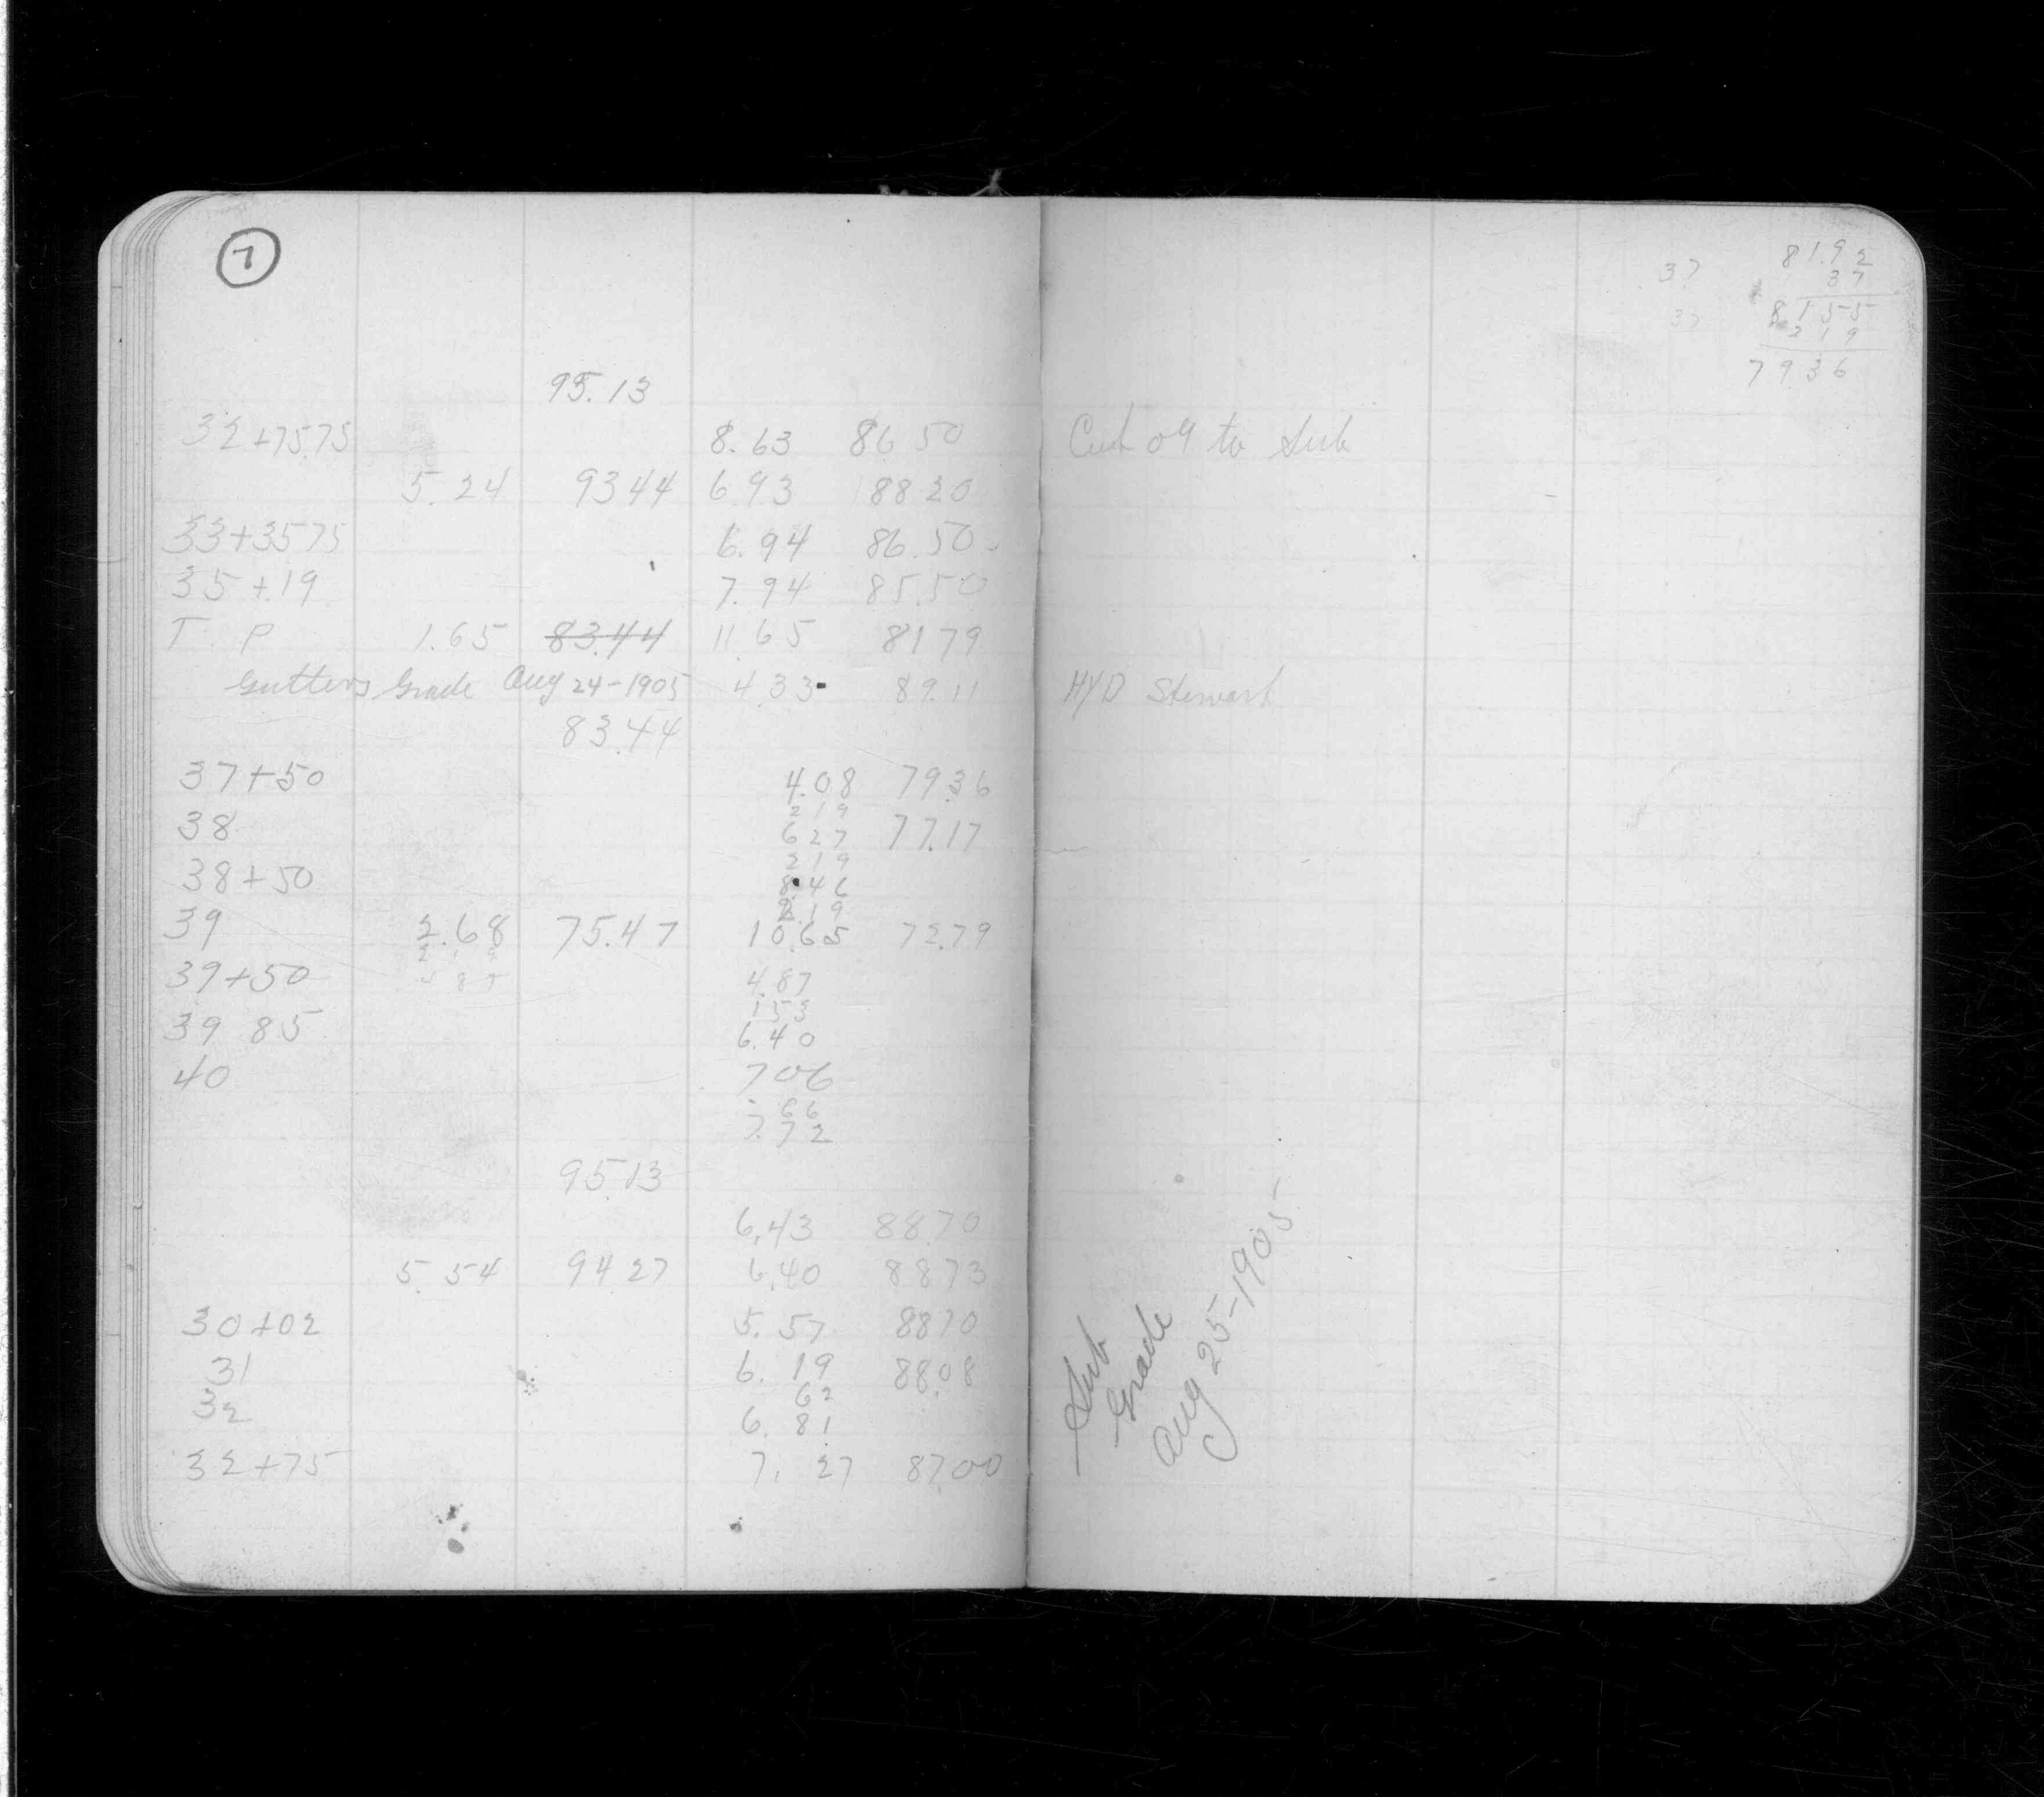 7
95.13
32+75.75 8.63 86 50
5.24 93 44 6.93 88 20
33+35 75 6.94 86.50
35+19 7.94 85.50
T P 1.65 83.44 11 65 81 79
Gutters Grade Aug 24-1905 4 33 89.11
83.44
37+50 4.08 79.36
2 19
38 6 27 77.17
2 19
38+50 8.46
2.19
39 2.68 75.47 10.65 72.79
2 1 9
39+50 4 8 7 4.87
1 53
39 85 6.40
40 7 06
66
7.72
95.13
6.43 88.70
5.54 94 27 6.40 88 73
30+02 5.57 88 70
31 6.19 88.08
62
32 6.81
32+75 7.27 87.00
37 81.9 2
3 7
37 8 1 5 5
2 1 9
7 9 3 6
Cut 09 to Sub
HYD Stewart
Sub
Grade
Aug 25-1905